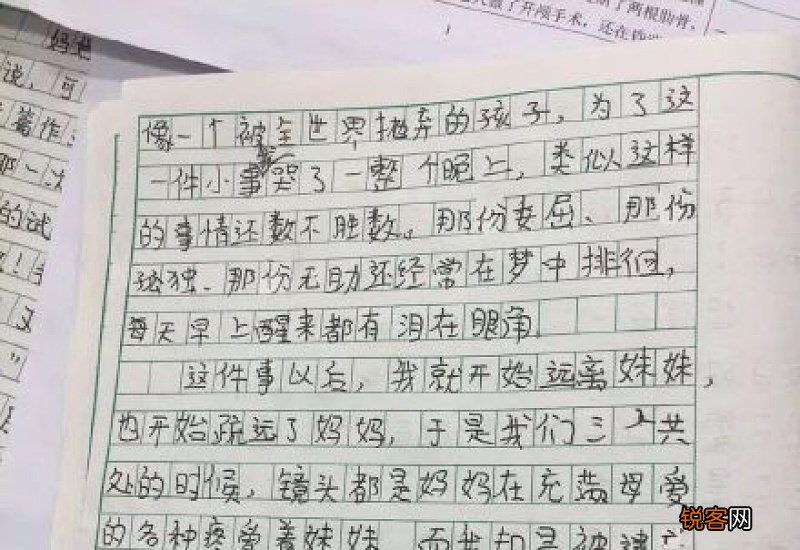 了两根肋骨,
了开颅手术,还在昏
说,可
著作:
那一次
的试
又
像一个被全世界抛弃的孩子,为了这
一件小事哭了一整个晚上,类似这样
的事情还数不胜数。那份委屈、那份
孤独、那份无助还经常在梦中排徊,
每天早上醒来都有泪在眼角.
这件事以后,我就开始远离妹妹,
也开始疏远了妈妈,于是我们三人共
处的时候,镜头都是妈妈在充满母爱
的各种疼爱着妹妹,而我却是被
锐客网